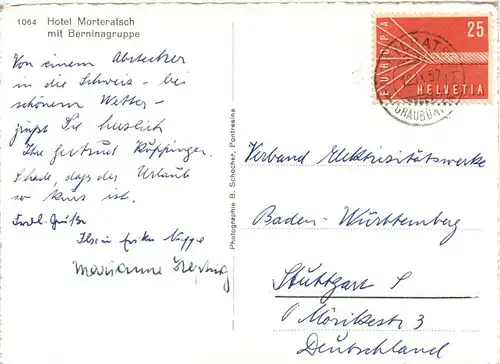 1064 Hotel Morteratsch
mit Berninagruppe
Von einem Abstecher
in die Schweiz - bei
schönem Wetter -
grüßt Sie herzlich
Ihre Gertrud Küppinger.
Schade, daß der Urlaub
so kurz ist.
Herzl. Grüße
Ihre
Marianne
Photographie B. Schocher, Pontresina
EUROPA
25
HELVETIA
(GRAUBÜN
Verband Elektrizitätswerke
Baden-Württemberg
Stuttgart S
Mörikestr 3
Deutschland